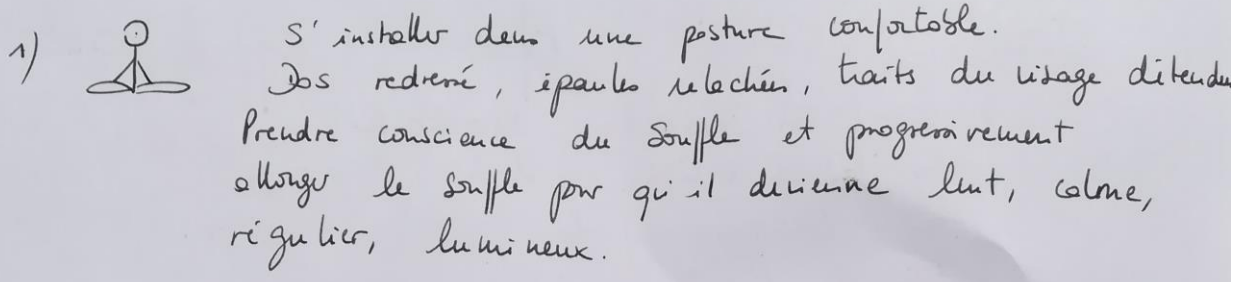 1) S'installer dans une posture confortable.
Dos redressé, épaules relachées, traits du visage détendu
Prendre conscience du souffle et progressivement
allonger le souffle pour qu'il devienne lent, calme,
régulier, lumineux.